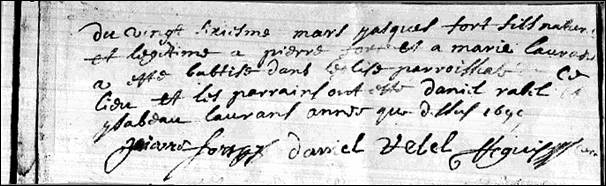 du vingt sixisme mars jasques fort fils nature
et legitime a pierre fort et a marie laurans
a esté baptise dans leglise parroissialle
lieu et les parrains ont esté daniel rabel
ysabeau laurans année que dessus 169
fort daniel Rebel